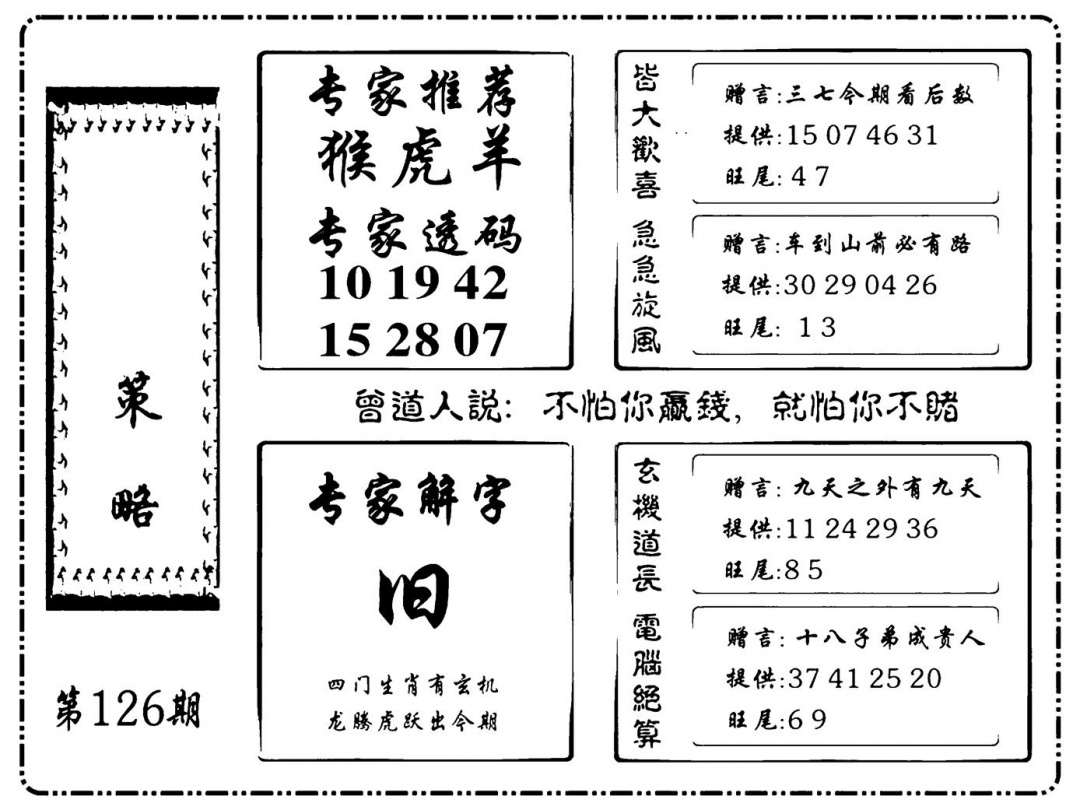 策
略
第126期
专家推荐
猴虎羊
专家透码
10 19 42
15 28 07
皆大歡喜
赠言:三七今期看后数
提供:15 07 46 31
旺尾:4 7
急急旋風
赠言:车到山前必有路
提供:30 29 04 26
旺尾: 1 3
曾道人説: 不怕你贏錢, 就怕你不賭
专家解字
旧
四门生肖有玄机
龙腾虎跃出今期
玄機道長
赠言: 九天之外有九天
提供:11 24 29 36
旺尾:8 5
電腦絕算
赠言: 十八子弟成贵人
提供:37 41 25 20
旺尾:6 9